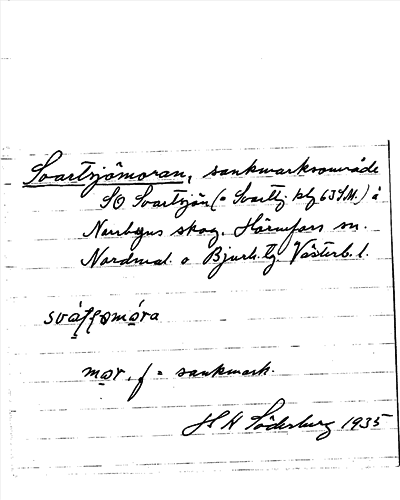 Svartsjömoran, sankmarksområde
SO Svartsjön (= Svarttj. kbl 63 S.M.) å
Norrbyns skog. Hörnefors sn.
Nordmal. o Bjurh. tg. Västerb. l.
mor, f = sankmark.
H H Söderburg 1935